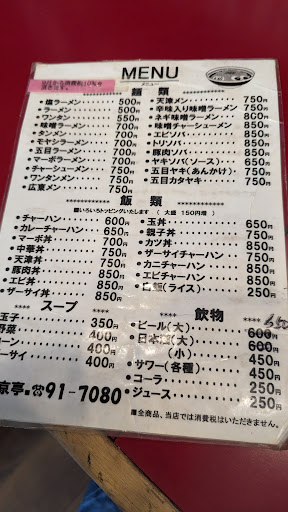 MENU
メニュー
麺類
・塩ラーメン・・・・・・500円
・ラーメン・・・・・・500円
・ワンタン・・・・・・550円
・味噌ラーメン・・・・700円
・タンメン・・・・・・700円
・モヤシラーメン・・・700円
・五目ラーメン・・・・700円
・マーボラーメン・・・700円
・チャーシューメン・・750円
・ワンタンメン・・・・750円
・広東メン・・・・・・750円
・天津メン・・・・・・750円
・辛味入り味噌ラーメン・750円
・ネギ味噌ラーメン・・800円
・味噌チャーシューメン・850円
・エビソバ・・・・・・850円
・トリソバ・・・・・・850円
・豚肉ソバ・・・・・・850円
・ヤキソバ(ソース)・・650円
・五目ヤキ(あんかけ)・750円
・五目カタヤキ・・・・750円
飯類
麺いろいろトッピングいたします (大盛 150円増)
・チャーハン・・・・・600円
・カレーチャーハン・・650円
・マーボ丼・・・・・・700円
・中華丼・・・・・・・750円
・天津丼・・・・・・・750円
・豚肉丼・・・・・・・850円
・エビ丼・・・・・・・850円
ザーサイ丼・・・・・・850円
・玉丼・・・・・・・・650円
・親子丼・・・・・・・750円
・カツ丼・・・・・・・850円
・ザーサイチャーハン・750円
・カニチャーハン・・・850円
・エビチャーハン・・・850円
(ライス)・・・・・・250円
スープ
玉子・・・・・・350円
野菜・・・・・・400円
コーン・・・・・400円
ザーサイ・・・・400円
飲物
650
・ビール(大)・・・・600円
・日本酒(大)・・・・600円
(小)・・・・450円
・サワー(各種)・・・450円
・コーラ・・・・・・250円
・ジュース・・・・・250円
京亭 ☎91-7080
■全商品、当店では消費税はいただきません。